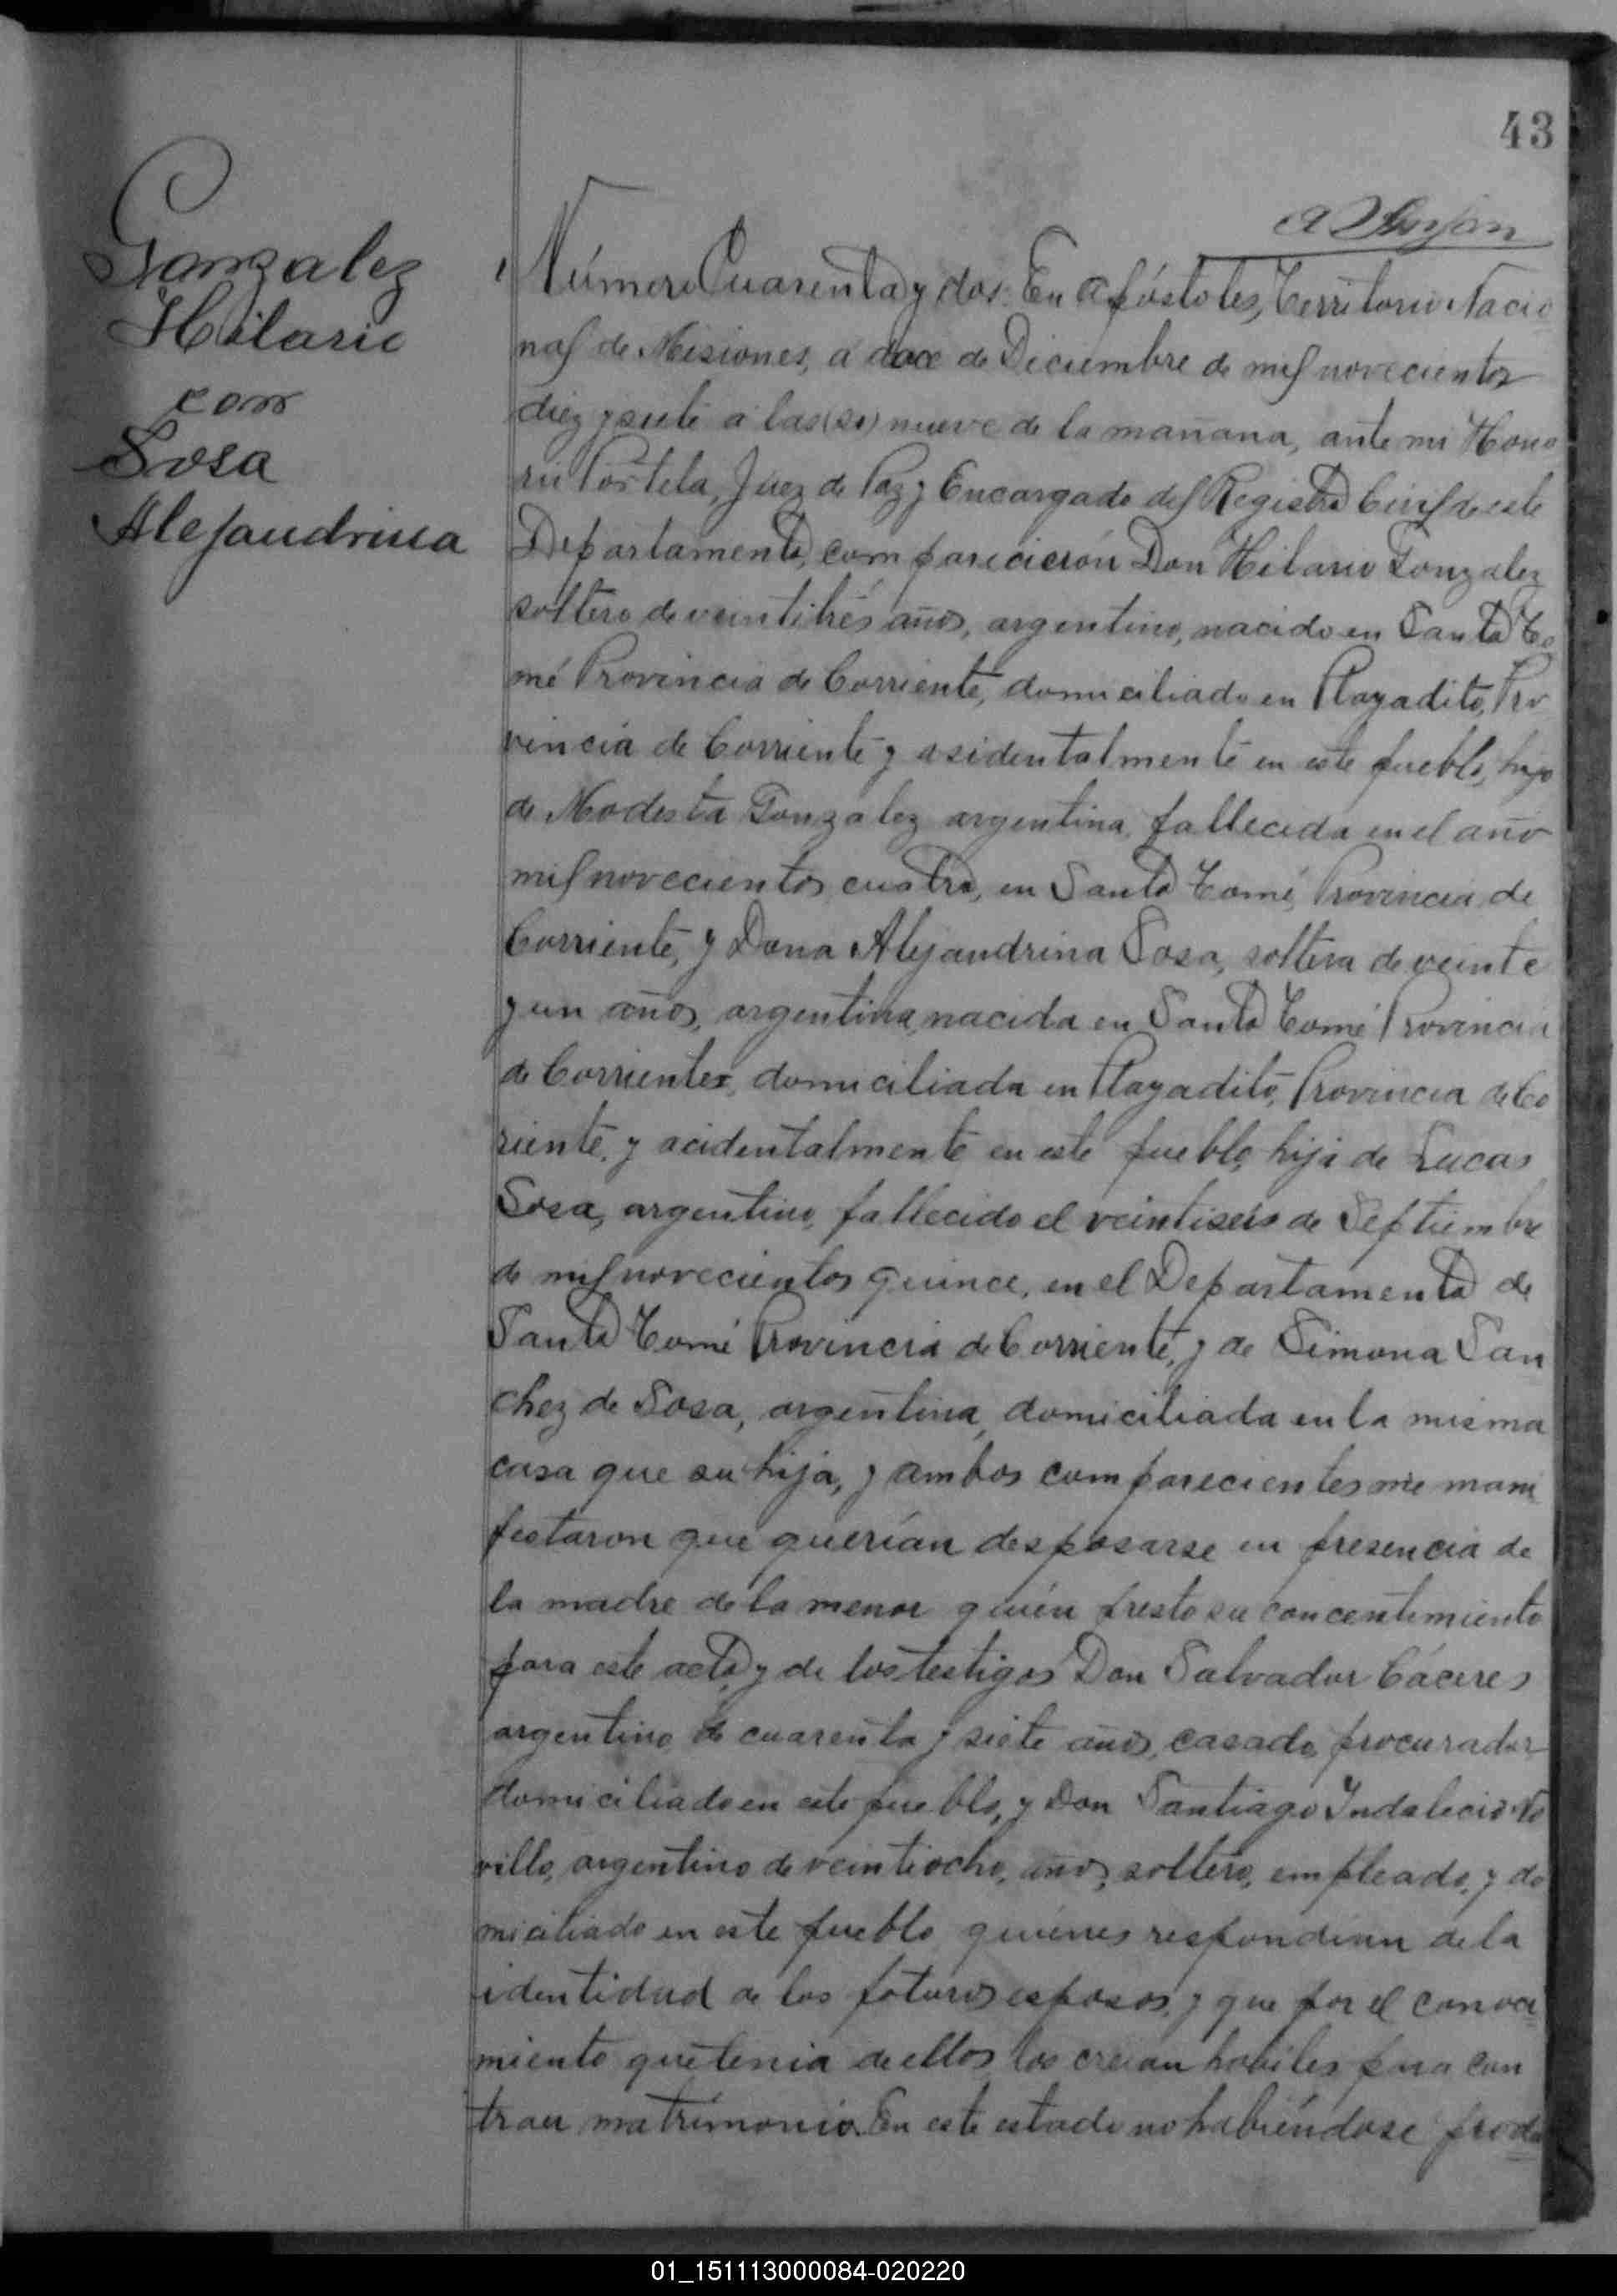 43
Gonzalez
Hilario
con
Sosa
Alejandrina
Número Cuarenta y dos: En Apóstoles, Territorio Nacio
nal de Misiones, á doce de Diciembre de mil novecientos
diez y siete á las (se) nueve de la mañana, ante mi Hono
rio Portela, Juez de Paz y Encargado del Registro Civil de este
Departamento, comparicieron Don Hilario Gonzalez
soltero de veintitrés años, argentino, nacido en Santo To
mé Provincia de Corriente, domiciliado en Playadito, Pro
vincia de Corriente y asidentalmente en este pueblo, hijo
de Modesta Gonzalez argentina, fallecida en el año
mil novecientos cuatro, en Santo Tomé, Provincia de
Corriente, y Dona Alejandrina Sosa, soltera de veinte
y un años, argentina, nacida en Santo Tomé Provincia
de Corrientes, domiciliada en Playadito, Provincia de Co
riente, y acidentalmente en este pueblo, hija de Lucas
Sosa, argentino, fallecido el veintiseis de Septiembre
de mil novecientos quince, en el Departamento de
Santo Tomé Provincia de Corriente, y de Simona San
chez de Sosa, argentina, domiciliada en la misma
casa que su hija, y ambos comparecientes me mani
festaron que querían desposarse en presencia de
la madre de la menor quién presto su concentimiento
para este acto, y de los testigos Don Salvador Cáceres
argentino, de cuarenta y siete años, casado, procurador
domiciliado en este pueblo, y Don Santiago Indalecio No
villo, argentino de veintiocho, años, soltero, empleado, y do
miciliado en este pueblo quiénes respondían de la
identidad de los foturos esposos, y que por el conoci
miento que tenia de ellos, los creian habiles para con
traer matrímonio. En este estado no habiéndose produ
01_151113000084-020220